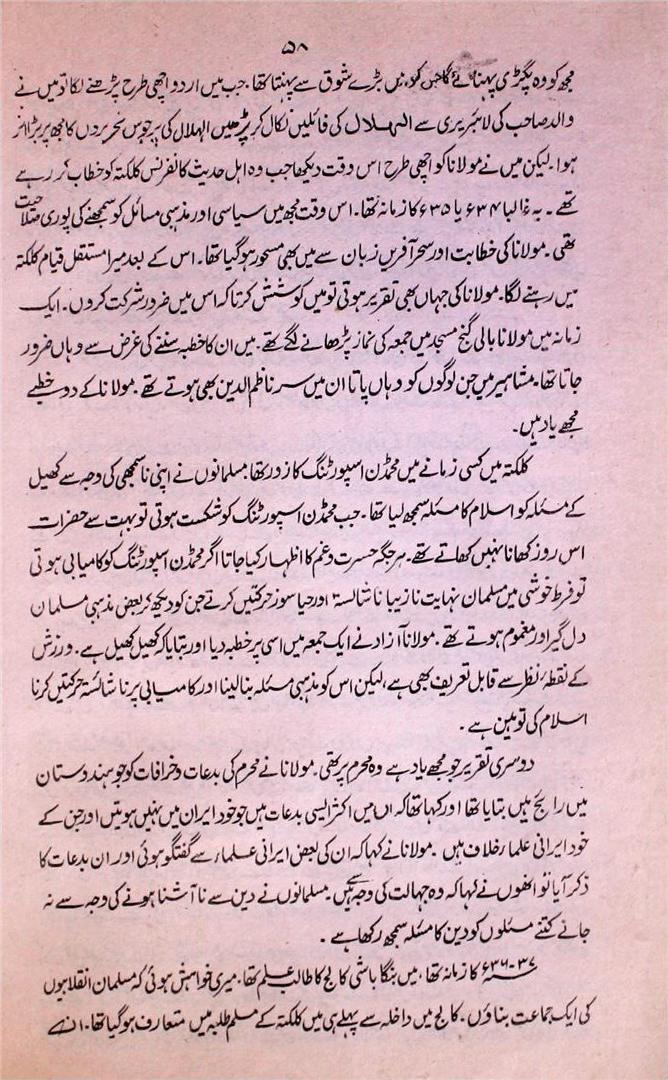 ۵۸
مجھ کو وہ پگڑی پہنائے گا جس کو میں بڑے شوق سے پہنتا تھا۔ جب میں اردو اچھی طرح پڑھنے لگا تو میں نے
والد صاحب کی لائبریری سے الہلال کی فائلیں نکال کر پڑھیں الہلال کی پرجوش تحریروں کا مجھ پر بڑا اثر
ہوا۔ لیکن میں نے مولانا کو اچھی طرح اس وقت دیکھا جب وہ اہل حدیث کانفرنس کلکتہ کو خطاب کر رہے
تھے۔ یہ غالباً ۶۳۴ یا ۶۳۵ کا زمانہ تھا۔ اس وقت مجھ میں سیاسی اور مذہبی مسائل کو سمجھنے کی پوری صلاحیت
تھی۔ مولانا کی خطابت اور سحر آفریں زبان سے میں بھی مسحور ہو گیا تھا۔ اس کے بعد میرا مستقل قیام کلکتہ
میں رہنے لگا۔ مولانا کی جہاں بھی تقریر ہوتی تو میں کوشش کرتا کہ اس میں ضرور شرکت کروں۔ ایک
زمانہ میں مولانا بالی گنج مسجد میں جمعہ کی نماز پڑھانے لگے تھے۔ میں ان کا خطبہ سننے کی غرض سے وہاں ضرور
جاتا تھا۔ مشاہیر میں جن لوگوں کو وہاں پاتا ان میں سر ناظم الدین بھی ہوتے تھے۔ مولانا کے دو خطبے
مجھے یاد ہیں۔
کلکتہ میں کسی زمانے میں محمڈن اسپورٹنگ کا زور تھا۔ مسلمانوں نے اپنی ناسمجھی کی وجہ سے کھیل
کے مسئلہ کو اسلام کا مسئلہ سمجھ لیا تھا۔ جب محمڈن اسپورٹنگ کو شکست ہوتی تو بہت سے حضرات
اس روز کھانا نہیں کھاتے تھے۔ ہر جگہ حسرت و غم کا اظہار کیا جاتا اگر محمڈن اسپورٹنگ کو کامیابی ہوتی
تو فرط خوشی میں مسلمان نہایت نازیبا ناشائستہ اور حیا سوز حرکتیں کرتے جن کو دیکھ کر بعض مذہبی مسلمان
دل گیر اور مغموم ہوتے تھے۔ مولانا آزاد نے ایک جمعہ میں اسی پر خطبہ دیا اور بتایا کہ کھیل کھیل ہے۔ ورزش
کے نقطۂ نظر سے قابل تعریف بھی ہے، لیکن اس کو مذہبی مسئلہ بنا لینا اور کامیابی پر ناشائستہ حرکتیں کرنا
اسلام کی توہین ہے۔
دوسری تقریر جو مجھے یاد ہے وہ محرم پر تھی۔ مولانا نے محرم کی بدعات و خرافات کو جو ہندوستان
میں رائج ہیں بتایا تھا اور کہا تھا کہ ان میں اکثر ایسی بدعات ہیں جو خود ایران میں نہیں ہوتیں اور جن کے
خود ایرانی علماء خلاف ہیں۔ مولانا نے کہا کہ ان کی بعض ایرانی علماء سے گفتگو ہوئی اور ان بدعات کا
ذکر آیا تو انھوں نے کہا کہ وہ جہالت کی وجہ سے ہیں۔ مسلمانوں نے دین سے نا آشنا ہونے کی وجہ سے نہ
جانے کتنے مسئلوں کو دین کا مسئلہ سمجھ رکھا ہے۔
۶۳۶-۳۷ کا زمانہ تھا، میں بنگا باشی کالج کا طالب علم تھا۔ میری خواہش ہوئی کہ مسلمان انقلابیوں
کی ایک جماعت بناؤں۔ کالج میں داخلہ سے پہلے ہی میں کلکتہ کے مسلم طلبہ میں متعارف ہو گیا تھا۔ ان سے